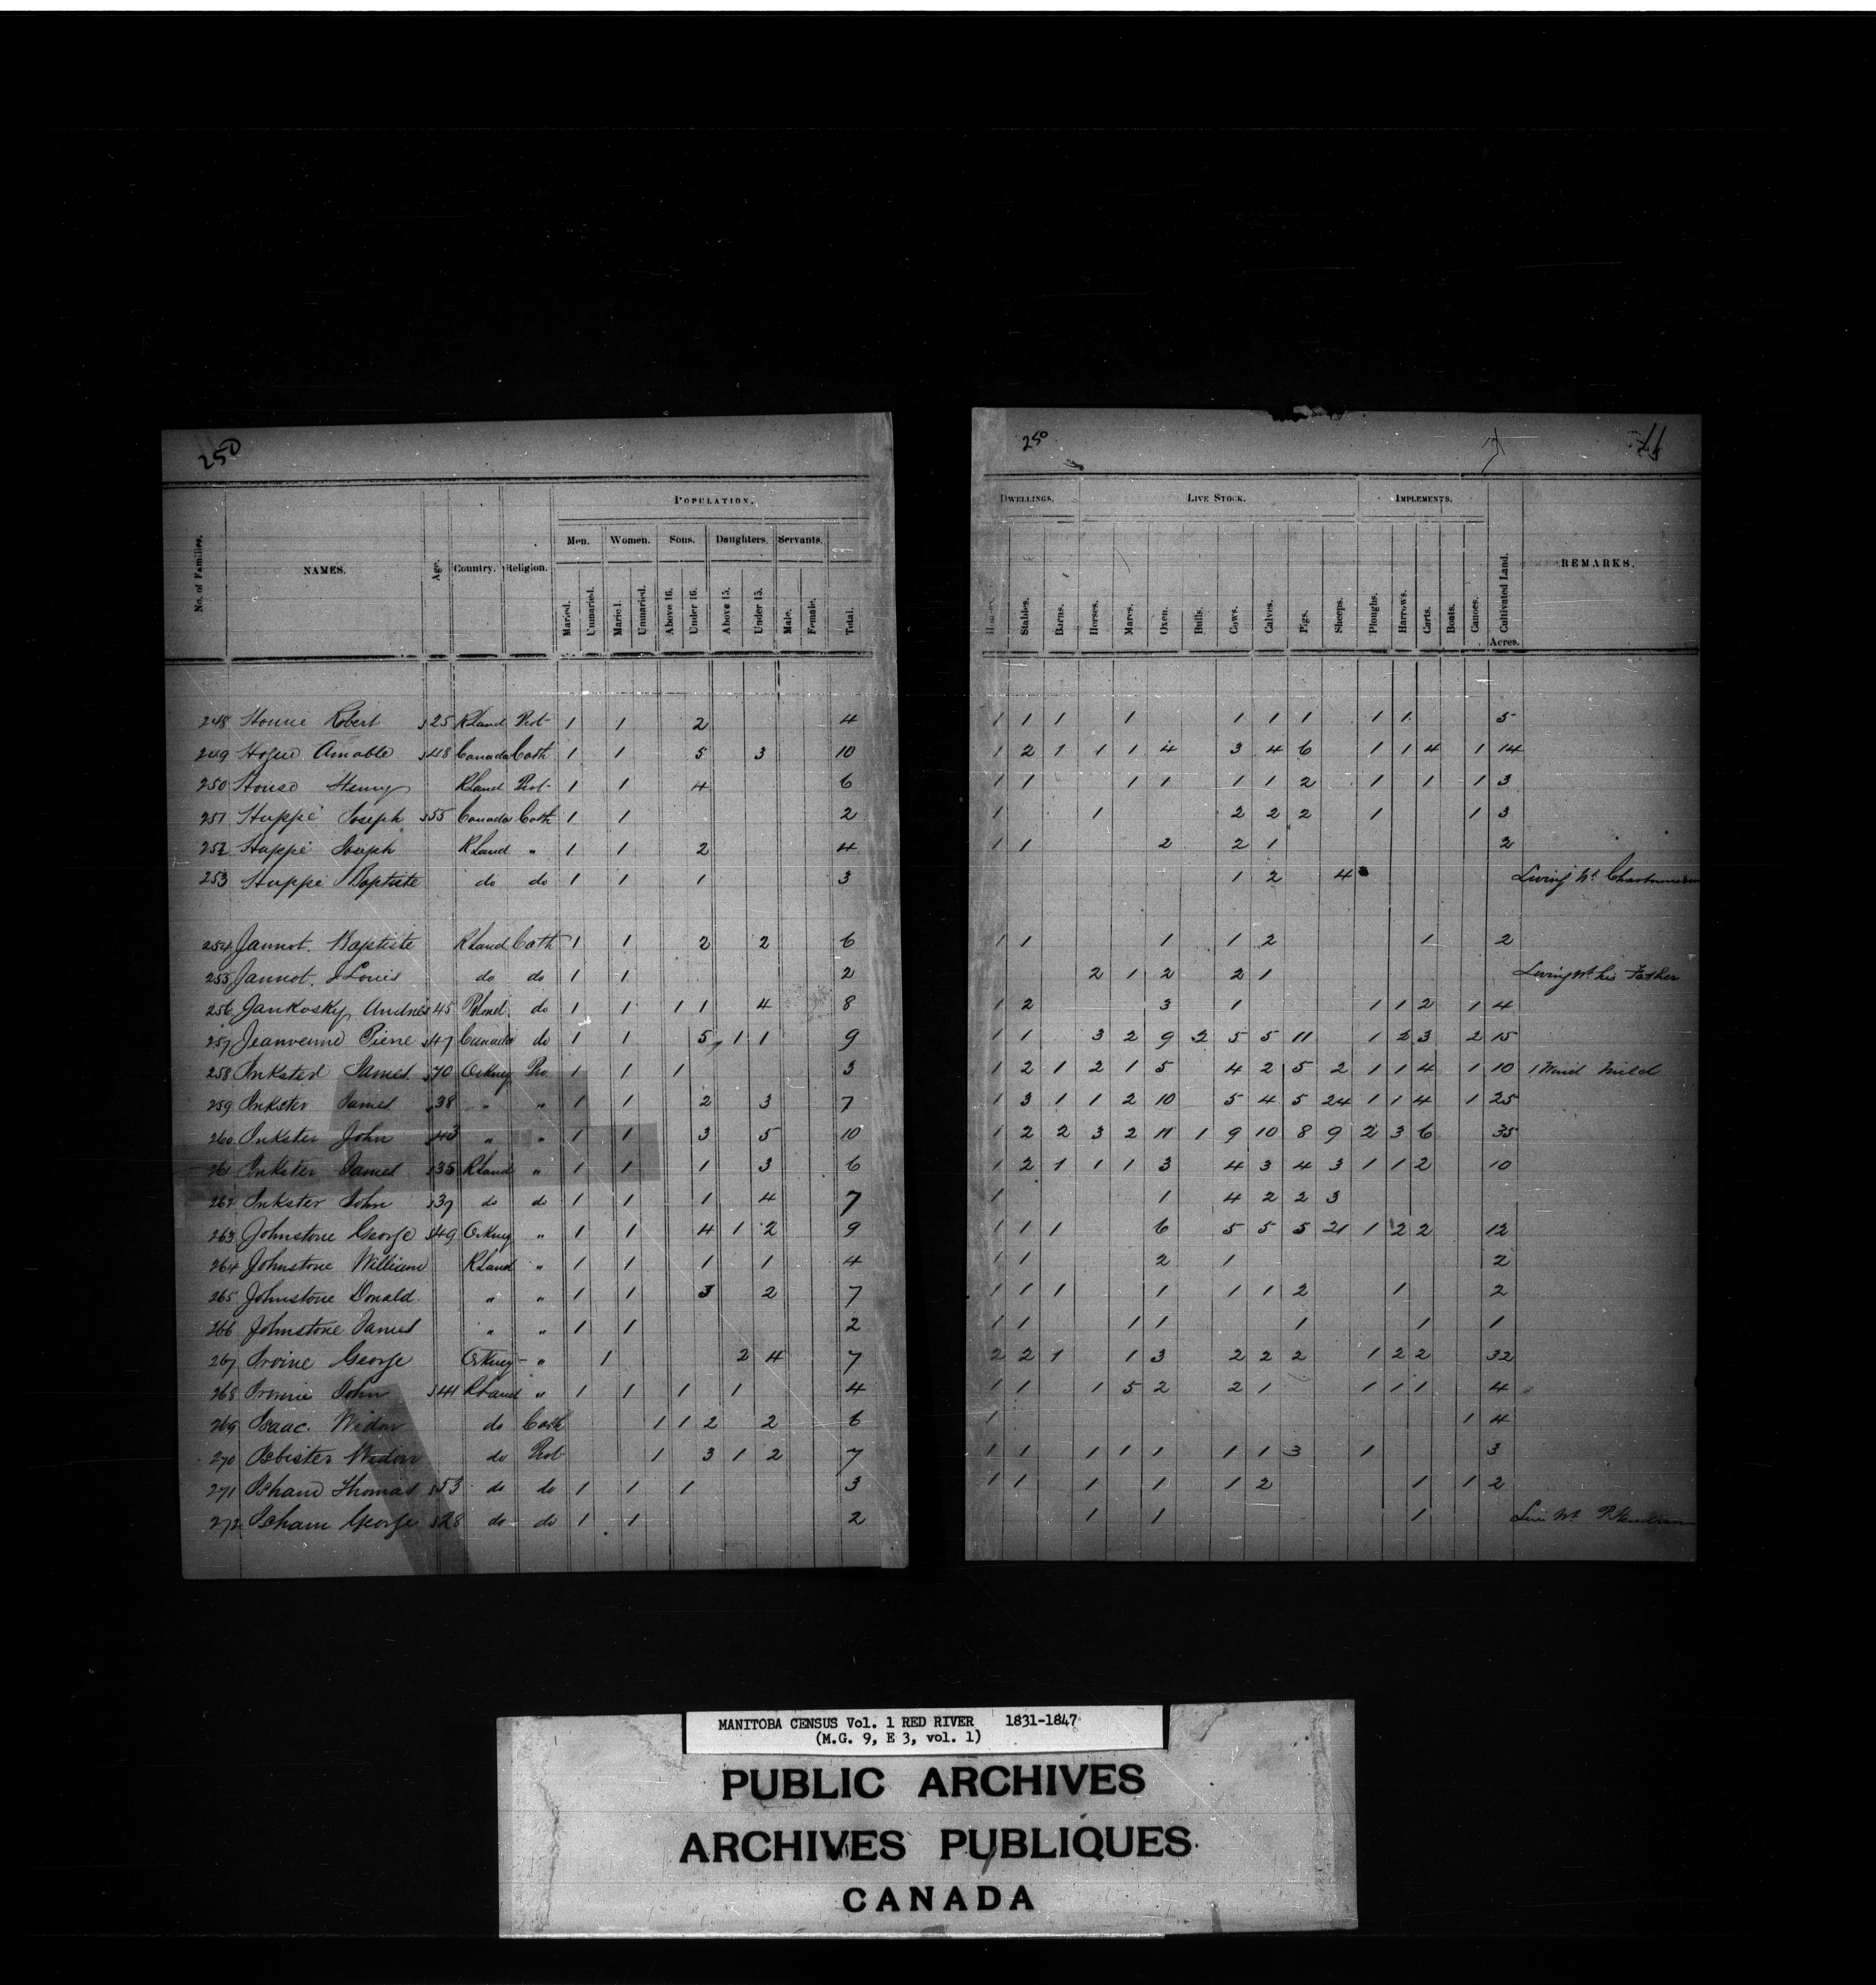 250
POPULATION.
No. of Families.
NAMES.
Age.
Country.
Religion.
Men.
Women.
Sons.
Daughters.
Servants.
Married.
Unmarried.
Married.
Unmarried.
Above 16.
Under 16.
Above 15.
Under 15.
Male.
Female.
Total.
248 Robert 25 RLand Prot 1 1 2 4
249 Hogue Amable 48 Canada Cath 1 1 5 3 10
250 House Henry RLand Prot 1 1 4 6
251 Huppé Joseph 55 Canada Cath 1 1 2
252 Huppé Joseph RLand " 1 1 2 4
253 Huppé Baptiste do do 1 1 1 3
254 Jannot Baptiste RLand Cath 1 1 2 2 6
255 Jannot Louis do do 1 1 2
256 Jankosky Andrie 45 Poland do 1 1 1 1 4 8
257 Jeanvenne Pierre 47 Canada do 1 1 5 1 1 9
258 Inksted James 70 Orkney Pro 1 1 1 3
259 Inkster James 38 " " 1 1 2 3 7
260 Inkster John 43 " " 1 1 3 5 10
261 Inkster James 35 RLand " 1 1 1 3 6
262 Inkster John 37 do do 1 1 1 4 7
263 Johnstone George 49 Orkney " 1 1 4 1 2 9
264 Johnstone William RLand " 1 1 1 1 4
265 Johnstone Donald " " 1 1 3 2 7
266 Johnstone James " " 1 1 2
267 Irvine George Orkney " 1 2 4 7
268 John 41 RLand " 1 1 1 1 4
269 Isaac Widow do Cath 1 1 2 2 6
270 Isbister Widow do Prot 1 3 1 2 7
271 Isham Thomas 53 do do 1 1 1 3
272 Isham George 28 do do 1 1 2
250
DWELLINGS.
LIVE STOCK.
IMPLEMENTS.
Houses.
Stables.
Barns.
Horses.
Mares.
Oxen.
Bulls.
Cows.
Calves.
Pigs.
Sheeps.
Ploughs.
Harrows.
Carts.
Boats.
Canoes.
Cultivated Land.
Acres.
REMARKS.
1 1 1 1 1 1 1 1 1 5
1 2 1 1 1 4 3 4 6 1 1 4 1 14
1 1 1 1 1 1 2 1 1 1 3
1 1 2 2 2 1 1 3
1 1 2 2 1 2
1 2 4 Living Wt
1 1 1 1 2 1 2
2 1 2 2 1 Living Wt his Father
1 2 3 1 1 1 2 1 4
1 1 3 2 9 2 5 5 11 1 2 3 2 15
1 2 1 2 1 5 4 2 5 2 1 1 4 1 10 1 Wind
1 3 1 1 2 10 5 4 5 24 1 1 4 1 25
1 2 2 3 2 11 1 9 10 8 9 2 3 6 35
1 2 1 1 1 3 4 3 4 3 1 1 2 10
1 1 4 2 2 3
1 1 1 6 5 5 5 21 1 2 2 12
1 1 2 1 2
1 1 1 1 1 1 2 1 2
1 1 1 1 1 1 1
2 2 1 1 3 2 2 2 1 2 2 32
1 1 1 5 2 2 1 1 1 1 4
1 1 4
1 1 1 1 1 1 1 3 1 3
1 1 1 1 1 2 1 1 2
1 1 1
MANITOBA CENSUS Vol. 1 RED RIVER 1831-1847
(M.G. 9, E 3, vol. 1)
PUBLIC ARCHIVES
ARCHIVES PUBLIQUES
CANADA